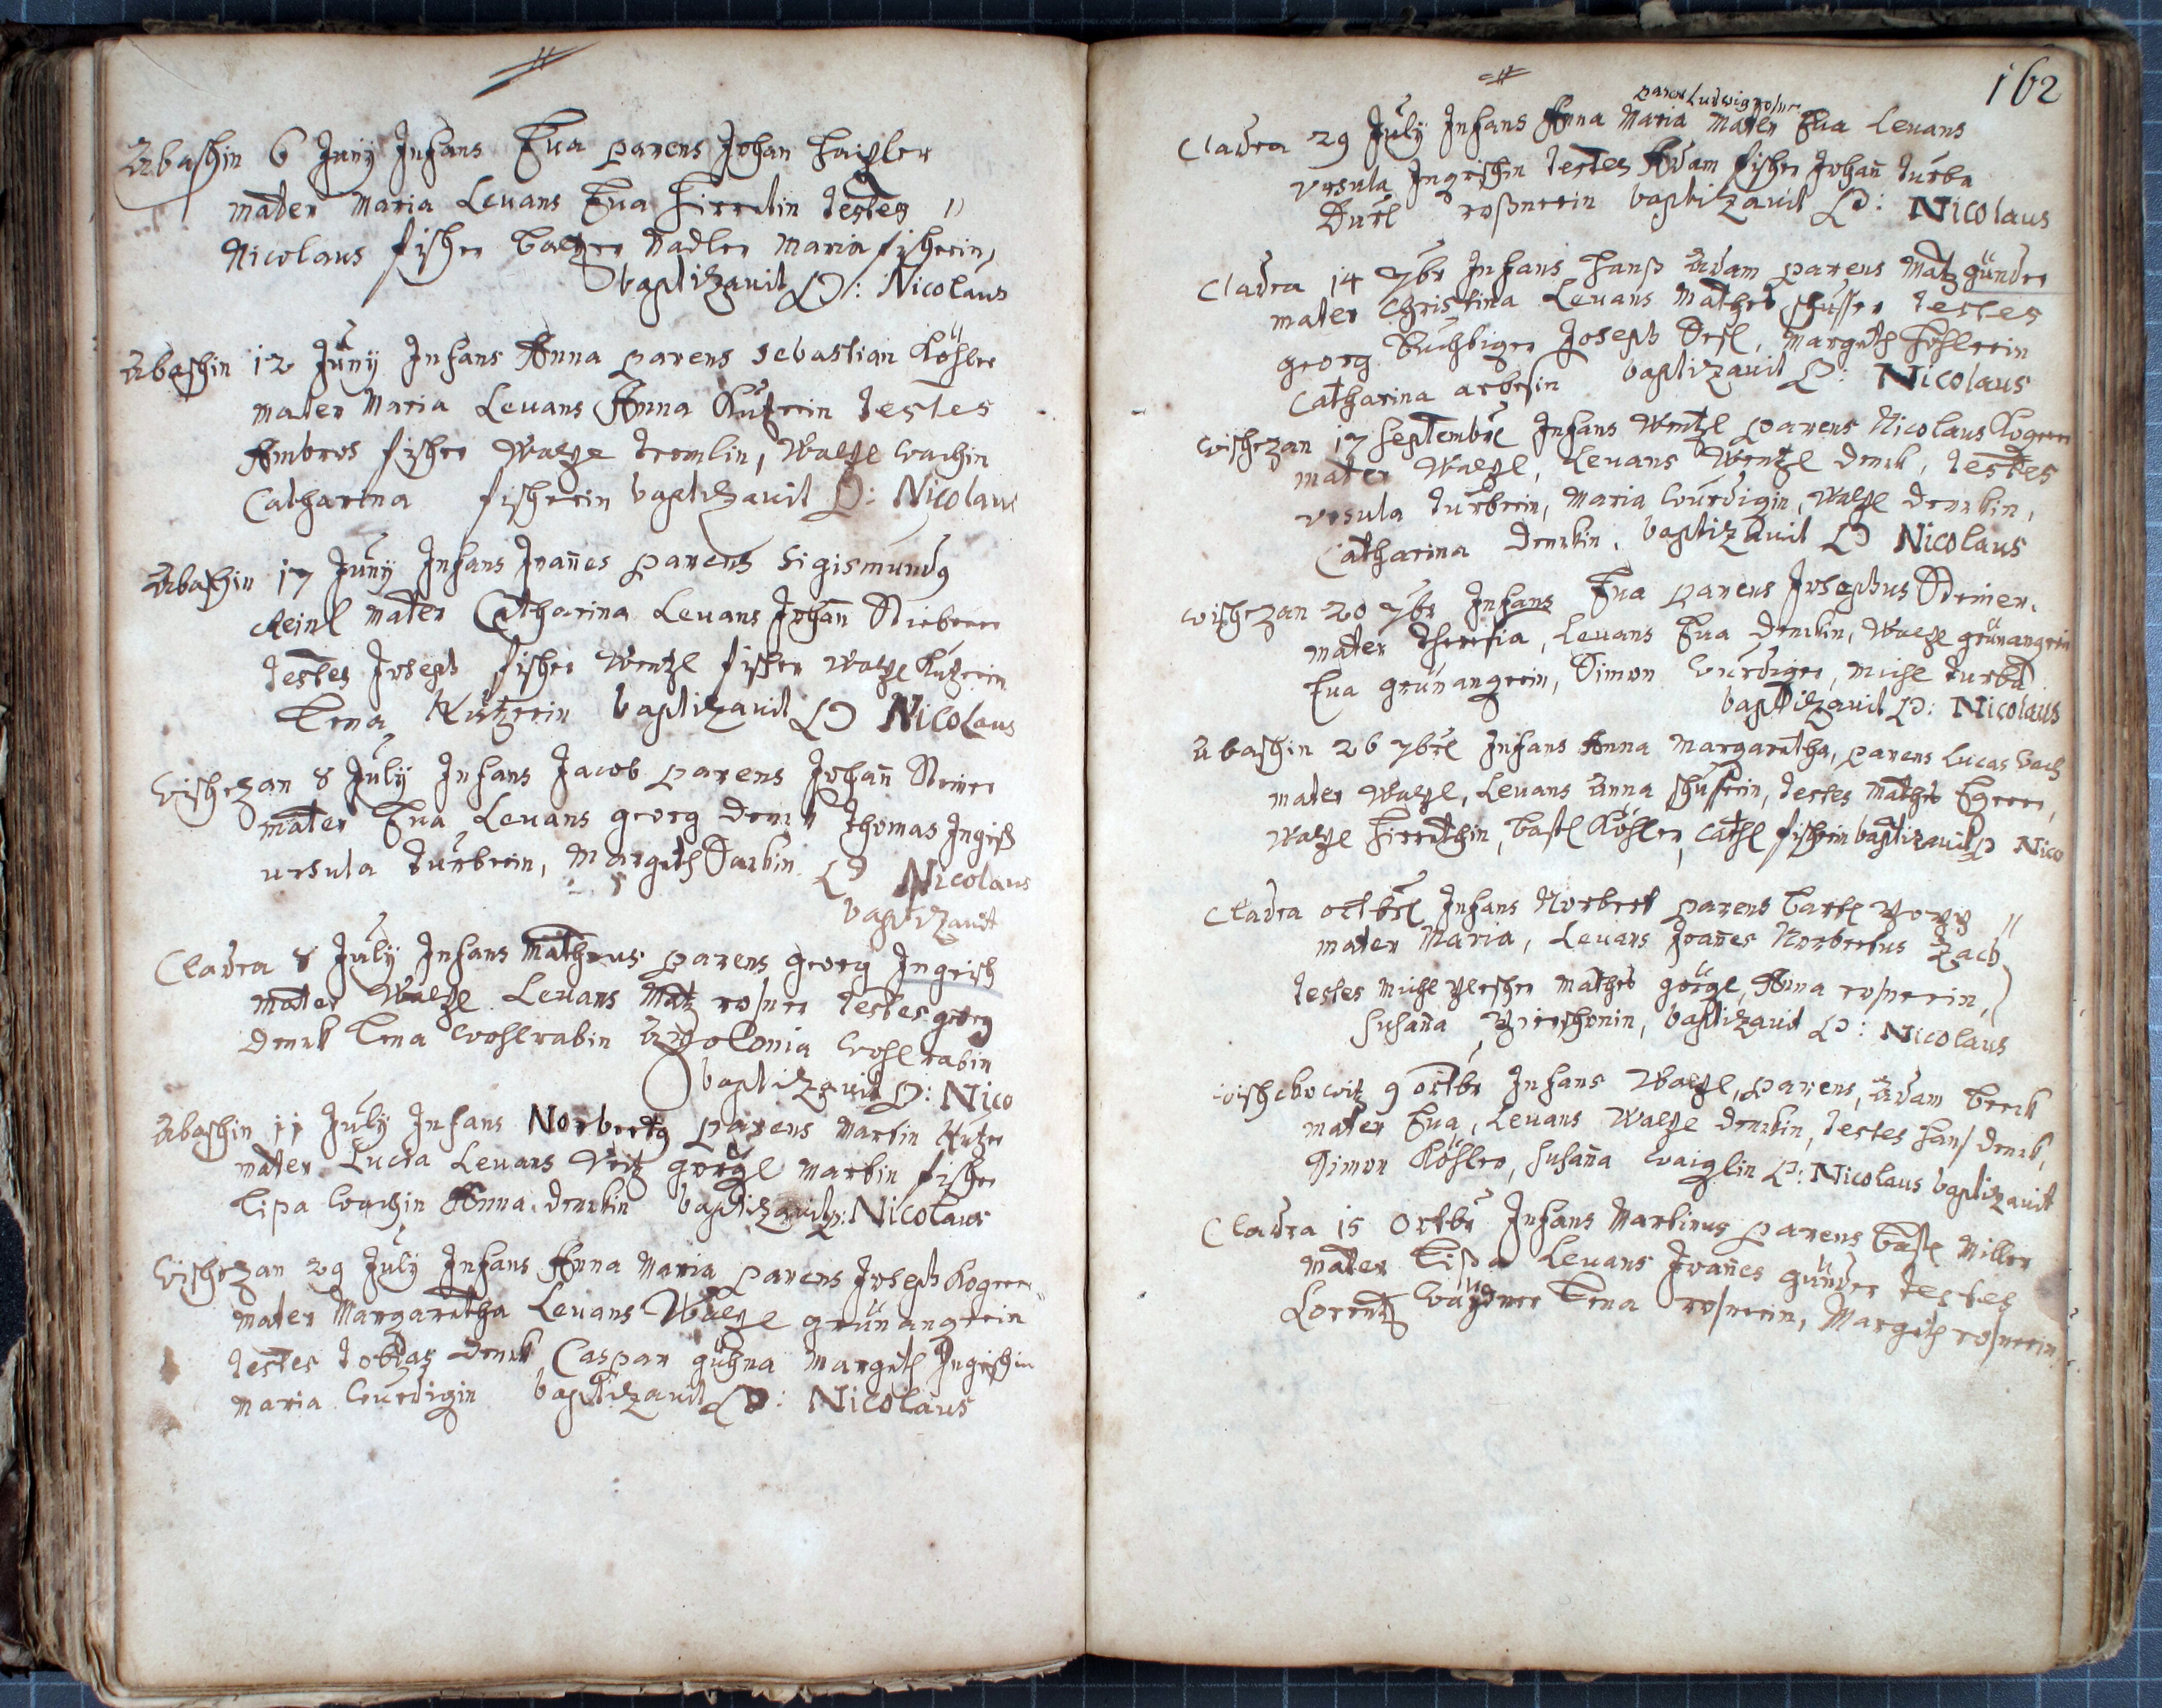 Abaschin 6 Juny Infans Eua parens Johan Haigler
mater Maria Leuans Eua Hirretin testes
Nicolaus fischer Baltzer Nadler Maria fischerin,
baptizauit P: Nicolaus
Abaschin 12 Juny Infans Anna parens Sebastian Köhler
mater Maria Leuans Anna Kutzerin testes
Ambros fischer Walze tremlin, Walzl wachin
Catharina fischerin baptizauit P: Nicolaus
Abaschin 17 Juny Infans Joañes parens Sigismundg
Reinl mater Catharina Leuans Johañ Stieberer
testes Joseph fischer Wentzl fischer Walze Kutzerin
Lena Kutzerin baptizauit P Nicolaus
Wischezan 8 July Infans Jacob parens Johañ Steiner
mater Eua Leuans georg Denck Thomas Ingrisch
ursula turberin, Margeth P Nicolaus
baptizauit
Cladra 8 July Infans Matheus parens georg Ingrisch
mater Walzl Leuans Matz rosner testes georg
Denck Lena wohlrabin Apolonia wohlrabin
baptizauit P: Nico
Abaschin 11 July Infans Norbertg parens Martin Kutzer
mater Lucia Leuans Veitz görgl Martin fischer
Lisa wachin Anna denckin baptizauit P: Nicolaus
Wischezan 29 July Infans Anna Maria parens Joseph Kogerer
mater Margaretha Leuans Walzl grünangerin
testes tobias denck Caspar gühna Margeth Ingrischin
Maria wurdigin baptizauit P: Nicolaus
162
parens Ludwig rosner
Cladra 29 July Infans Anna Maria mater Eua Leuans
vrsula Ingrischin testes Adam fischer Johañ turba
Durl roßnerin baptizauit P: Nicolaus
Cladra 14 7br Infans Hanß Adam parens Matz günder
mater Christina Leuans Mathes schusser testes
georg Buchbiger Joseph Margeth Köhlerin
Catharina arbesin baptizauit P: Nicolaus
Wischezan 17 Septembr Infans Wentzl parens Nicolaus Kogerer
mater Walzl, Leuans Wentzl denck, testes
vrsula turberin, Maria wurdigin, Walzl denckin,
Catharina denckin, baptizauit P Nicolaus
Wischezan 20 7br Infans Eua parens Josephus Steiner,
mater theresia, Leuans Eua denckin, Walze grünangerin
Eua grünangerin, Simon würdiger, Michl turba
baptizauit P: Nicolaus
Abaschin 26 7bris Infans Anna Margaretha, parens Lucas wach
mater Walzl, Leuans Anna schusserin, testes Mathes Egerer,
Walzl Hirrethin, Bastl Köhler, Cathl fischerin baptizauit P Nico
Cladra octbris Infans Norbert parens Bartl Popp
mater Maria, Leuans Joañes Norbertus Zach
testes Michl Plescher Mathes görgl, Anna rosnerin,
Susaña Pierschonin, baptizauit P: Nicolaus
Wischckowitz 9 octbr Infans Walzl, parens, Adam Beeck
mater Eua, Leuans Walzl denckin, testes Hans denck,
Simon Köhler, Susaña waiglin P: Nicolaus baptizauit
Cladra 15 octbr Infans Martinus parens Bastl Miller
mater Lisa Leuans Joañes günder testes
Lorentz Lena rosnerin, Margeth rosnerin